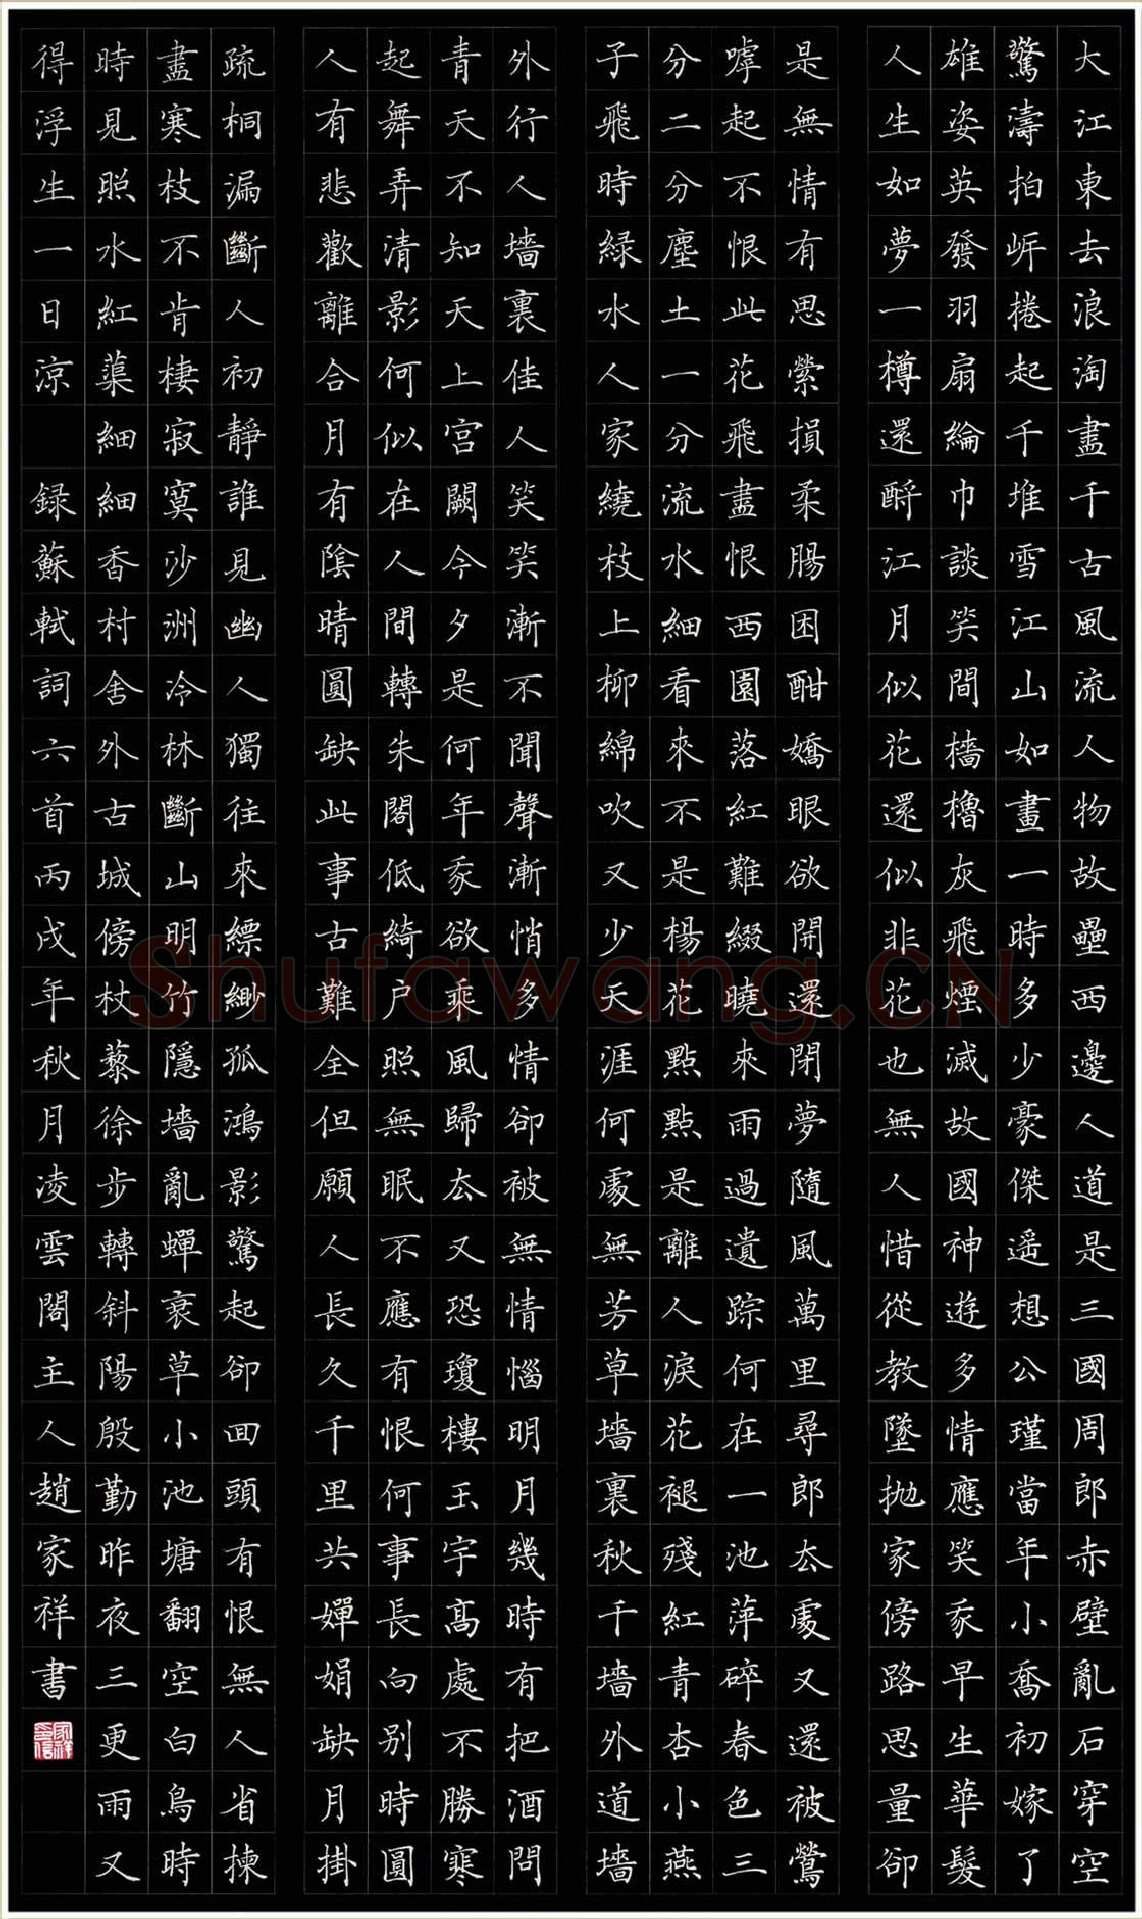 大江東去浪淘盡千古風流人物故壘西邊人道是三國周郎赤壁亂石穿空
驚濤拍岍捲起千堆雪江山如畫一時多少豪傑遥想公瑾當年小喬初嫁了
雄姿英發羽扇綸巾談笑間檣櫓灰飛煙滅故國神遊多情應笑我早生華髮
人生如夢一樽還酹江月似花還似非花也無人惜從教墜拋家傍路思量卻
是無情有思縈損柔腸困酣嬌眼欲開還閉夢隨風萬里尋郎去處又還被鶯
嘑起不恨此花飛盡恨西園落紅難綴曉來雨過遺踪何在一池萍碎春色三
分二分塵土一分流水細看來不是楊花點點是離人淚花褪殘紅青杏小燕
子飛時緑水人家繞枝上柳綿吹又少天涯何處無芳草墻裏秋千墻外道墻
外行人墻裏佳人笑笑漸不聞聲漸悄多情卻被無情惱明月幾時有把酒問
青天不知天上宮闕今夕是何年我欲乘風歸去又恐瓊樓玉宇高處不勝寒
起舞弄清影何似在人間轉朱閣低綺户照無眠不應有恨何事長向别時圓
人有悲歡離合月有陰晴圓缺此事古難全但願人長久千里共嬋娟缺月掛
疏桐漏斷人初靜誰見幽人獨往來縹緲孤鴻影驚起卻回頭有恨無人省揀
盡寒枝不肯棲寂寞沙洲冷林斷山明竹隱墻亂蟬衰草小池塘翻空白鳥時
時見照水紅蕖細細香村舍外古城傍杖藜徐步轉斜陽殷勤昨夜三更雨又
得浮生一日涼 録蘇軾詞六首丙戌年秋月凌雲閣主人趙家祥書
家祥印信
Shufawang.CN